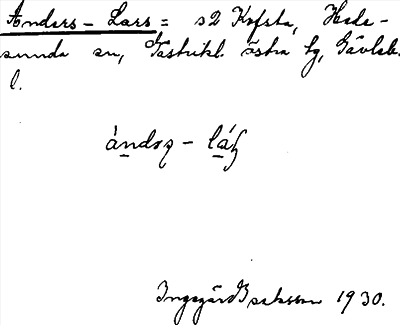 Anders – Lars = s2 Kofsta, Hede-
sunda sn, Gästrikl. östra tg, Gävleb.
l.
àndȿ – láȿ
Ingegärd Isaksson 1930.